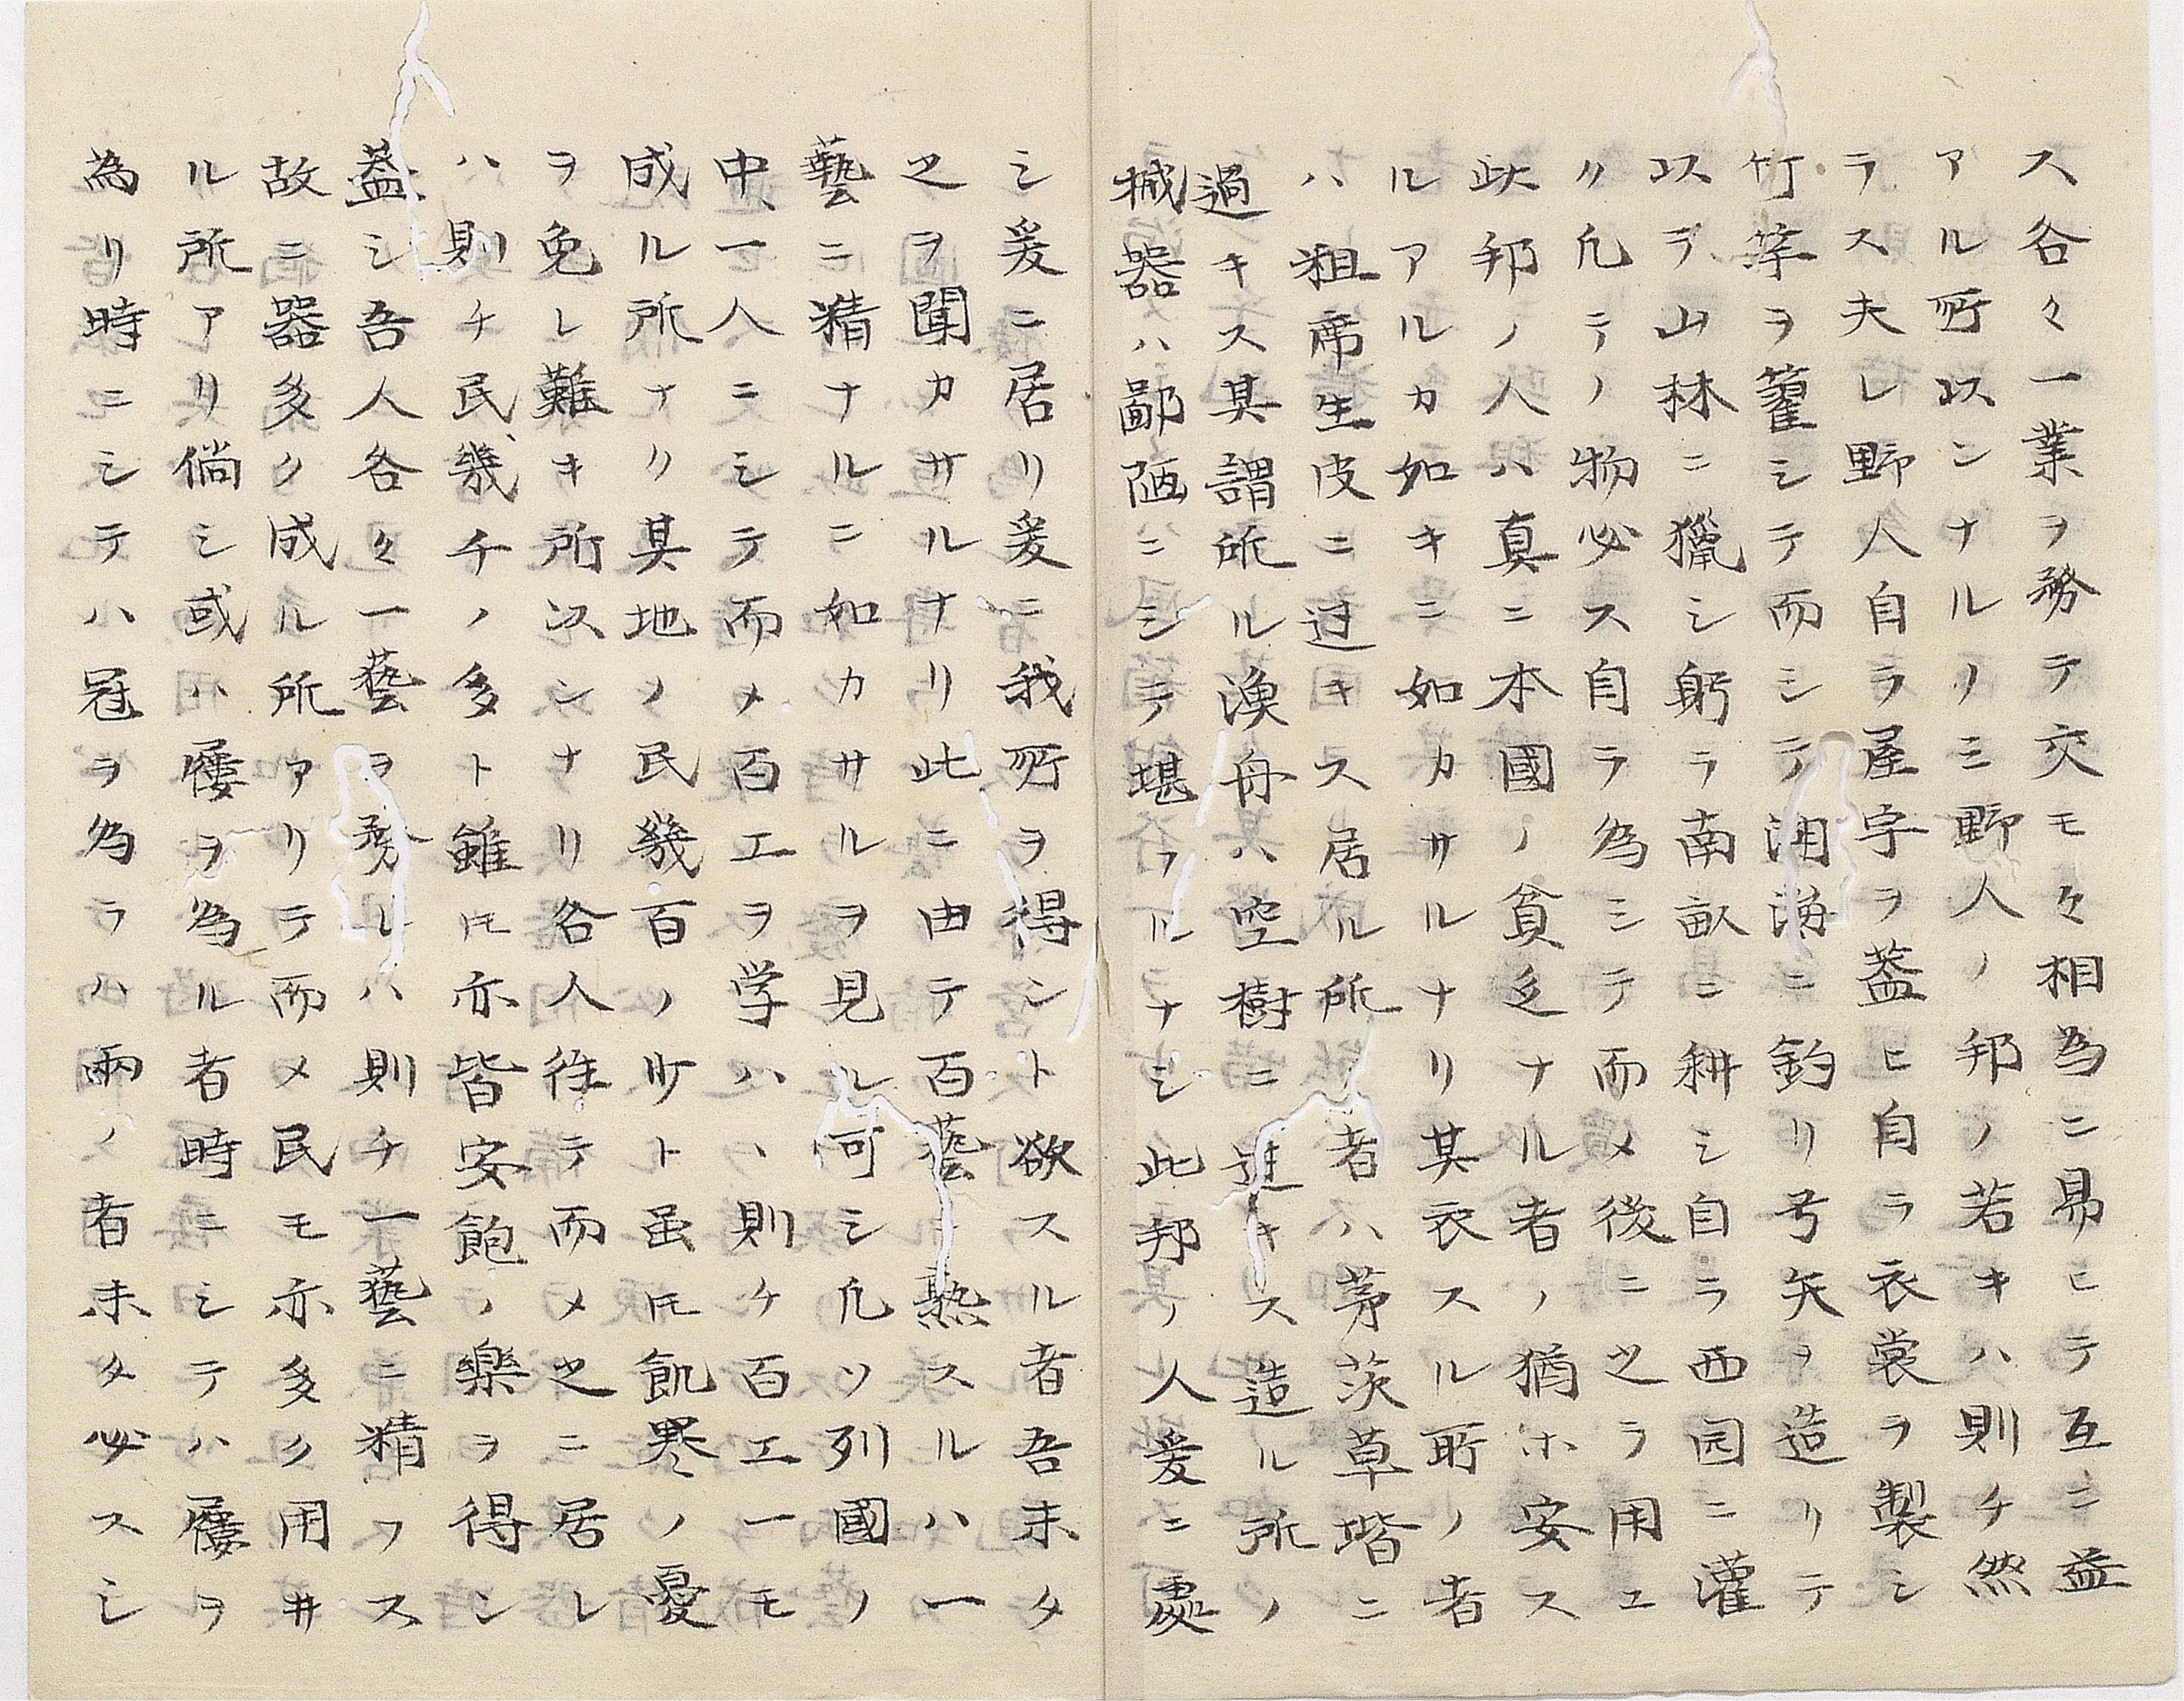 ス各々一業ヲ務テ交モ々相為ニ易ヒテ互ニ益
アル所以ンナルノミ野人ノ邦ノ若キハ則チ然
ラス夫レ野人自ラ屋宇ヲ葢ヒ自ラ衣裳ヲ製シ
竹竿ヲ籊シテ而シテ湖海ニ釣リ弓矢ヲ造リテ
以テ山林ニ獵シ躬ラ南畝ニ耕シ自ラ西园ニ灌
リ凢テノ物必ス自ラ為シテ而メ後ニ之ラ用ユ
此邦ノ人ハ真ニ本國ノ貧乏ナル者ノ猶ホ安ス
ルアルカ如キニ如カサルナリ其衣スル所ノ者
ハ粗席生皮ニ过キス居ル所ノ者ハ茅茨草堦ニ
過キス其謂所ル漁舟ハ空樹ニ過キス造ル所ノ
械器ハ鄙陋ニシテ堪フルナシ此邦ノ人爰ニ處
シ爰ニ居リ爰ニ我所ヲ得ント欲スル者吾未タ
之ヲ聞カサルナリ此ニ由テ百藝ニ熟スルハ一
藝ニ精ナルニ如カサルヲ見ル可シ凢ソ列國ノ
中一人ニシテ而メ百工ヲ学ハヽ則ケ百工一モ
成ル所ナク其地ノ民幾百ノ少ト虽𪜈飢寒ノ憂
ヲ免レ難キ所以ンナリ各人往テ而メ之ニ居レ
ハ則チ民幾千ノ多ト雖𪜈亦皆安飽ノ樂ヲ得ン
葢シ吾人各々一藝ヲ務レハ則チ一藝ニ精フス
故ニ器多ク成ル所アリテ而メ民モ亦多ク用ヰ
ル所アリ倘シ或ハ屨ヲ為ル者時ニシテハ屨ヲ
為リ時ニシテハ冠ヲ為ラハ兩ノ者未タ必スシ